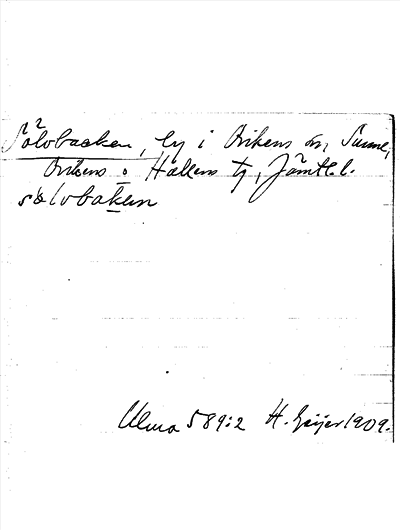 Sölvbacken, by i Ovikens sn, Sunne,
Ovikens o Hallens tg, Jämtl. l.
sölvbaken
Ulma 589:2 H. Geijer 1909.